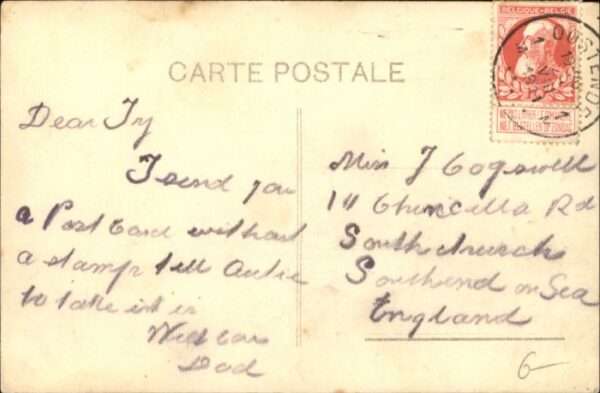 BELGIQUE·BELGIË
OOSTENDE
CARTE POSTALE
Dear Jy
I send you
a Post Card without
a stamp tell Autie
to take it in
Dad
Miss J Cogswell
Rd
Southchurch
Southend on Sea
England
6-